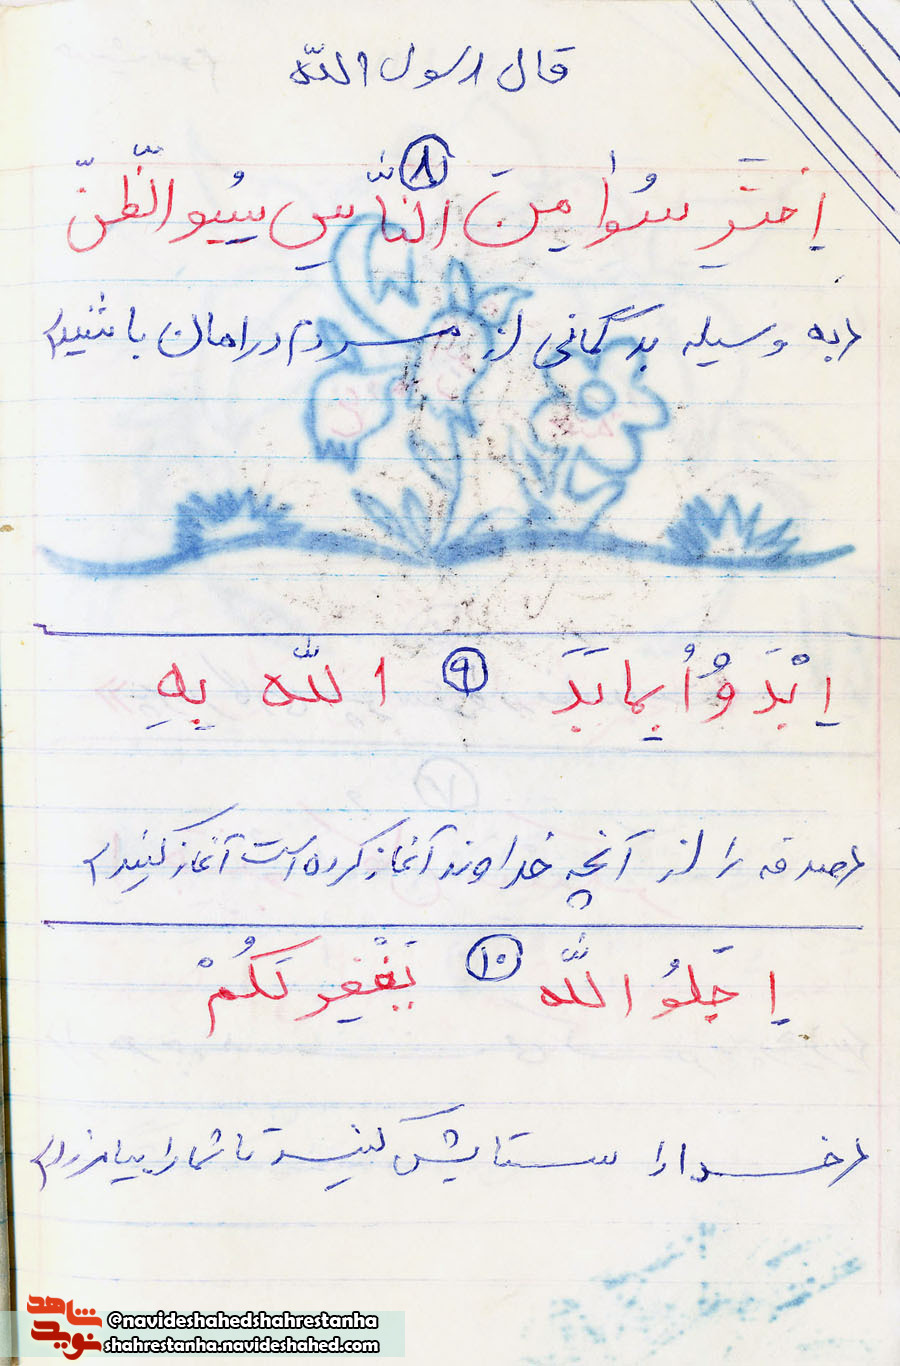 قال رسول اللّه
۸
اِحْتَرِسُوا مِنَ النّاسِ بِسُوءِ الظَّنِّ
(به وسیله بدگمانی از مردم در امان باشید)
۹
اِبْدَؤُا بِمابَدَ اللّه بِهِ
(صدقه را از آنچه خداوند آغاز کرده است آغاز کنید)
۱۰
اِجَلُّو اللّه یَغْفِر لَکُمْ
(خدا را ستایش کنید تا شما را بیامرزد)
شاهد
نوید
@navideshahedshahrestanha
shahrestanha.navideshahed.com